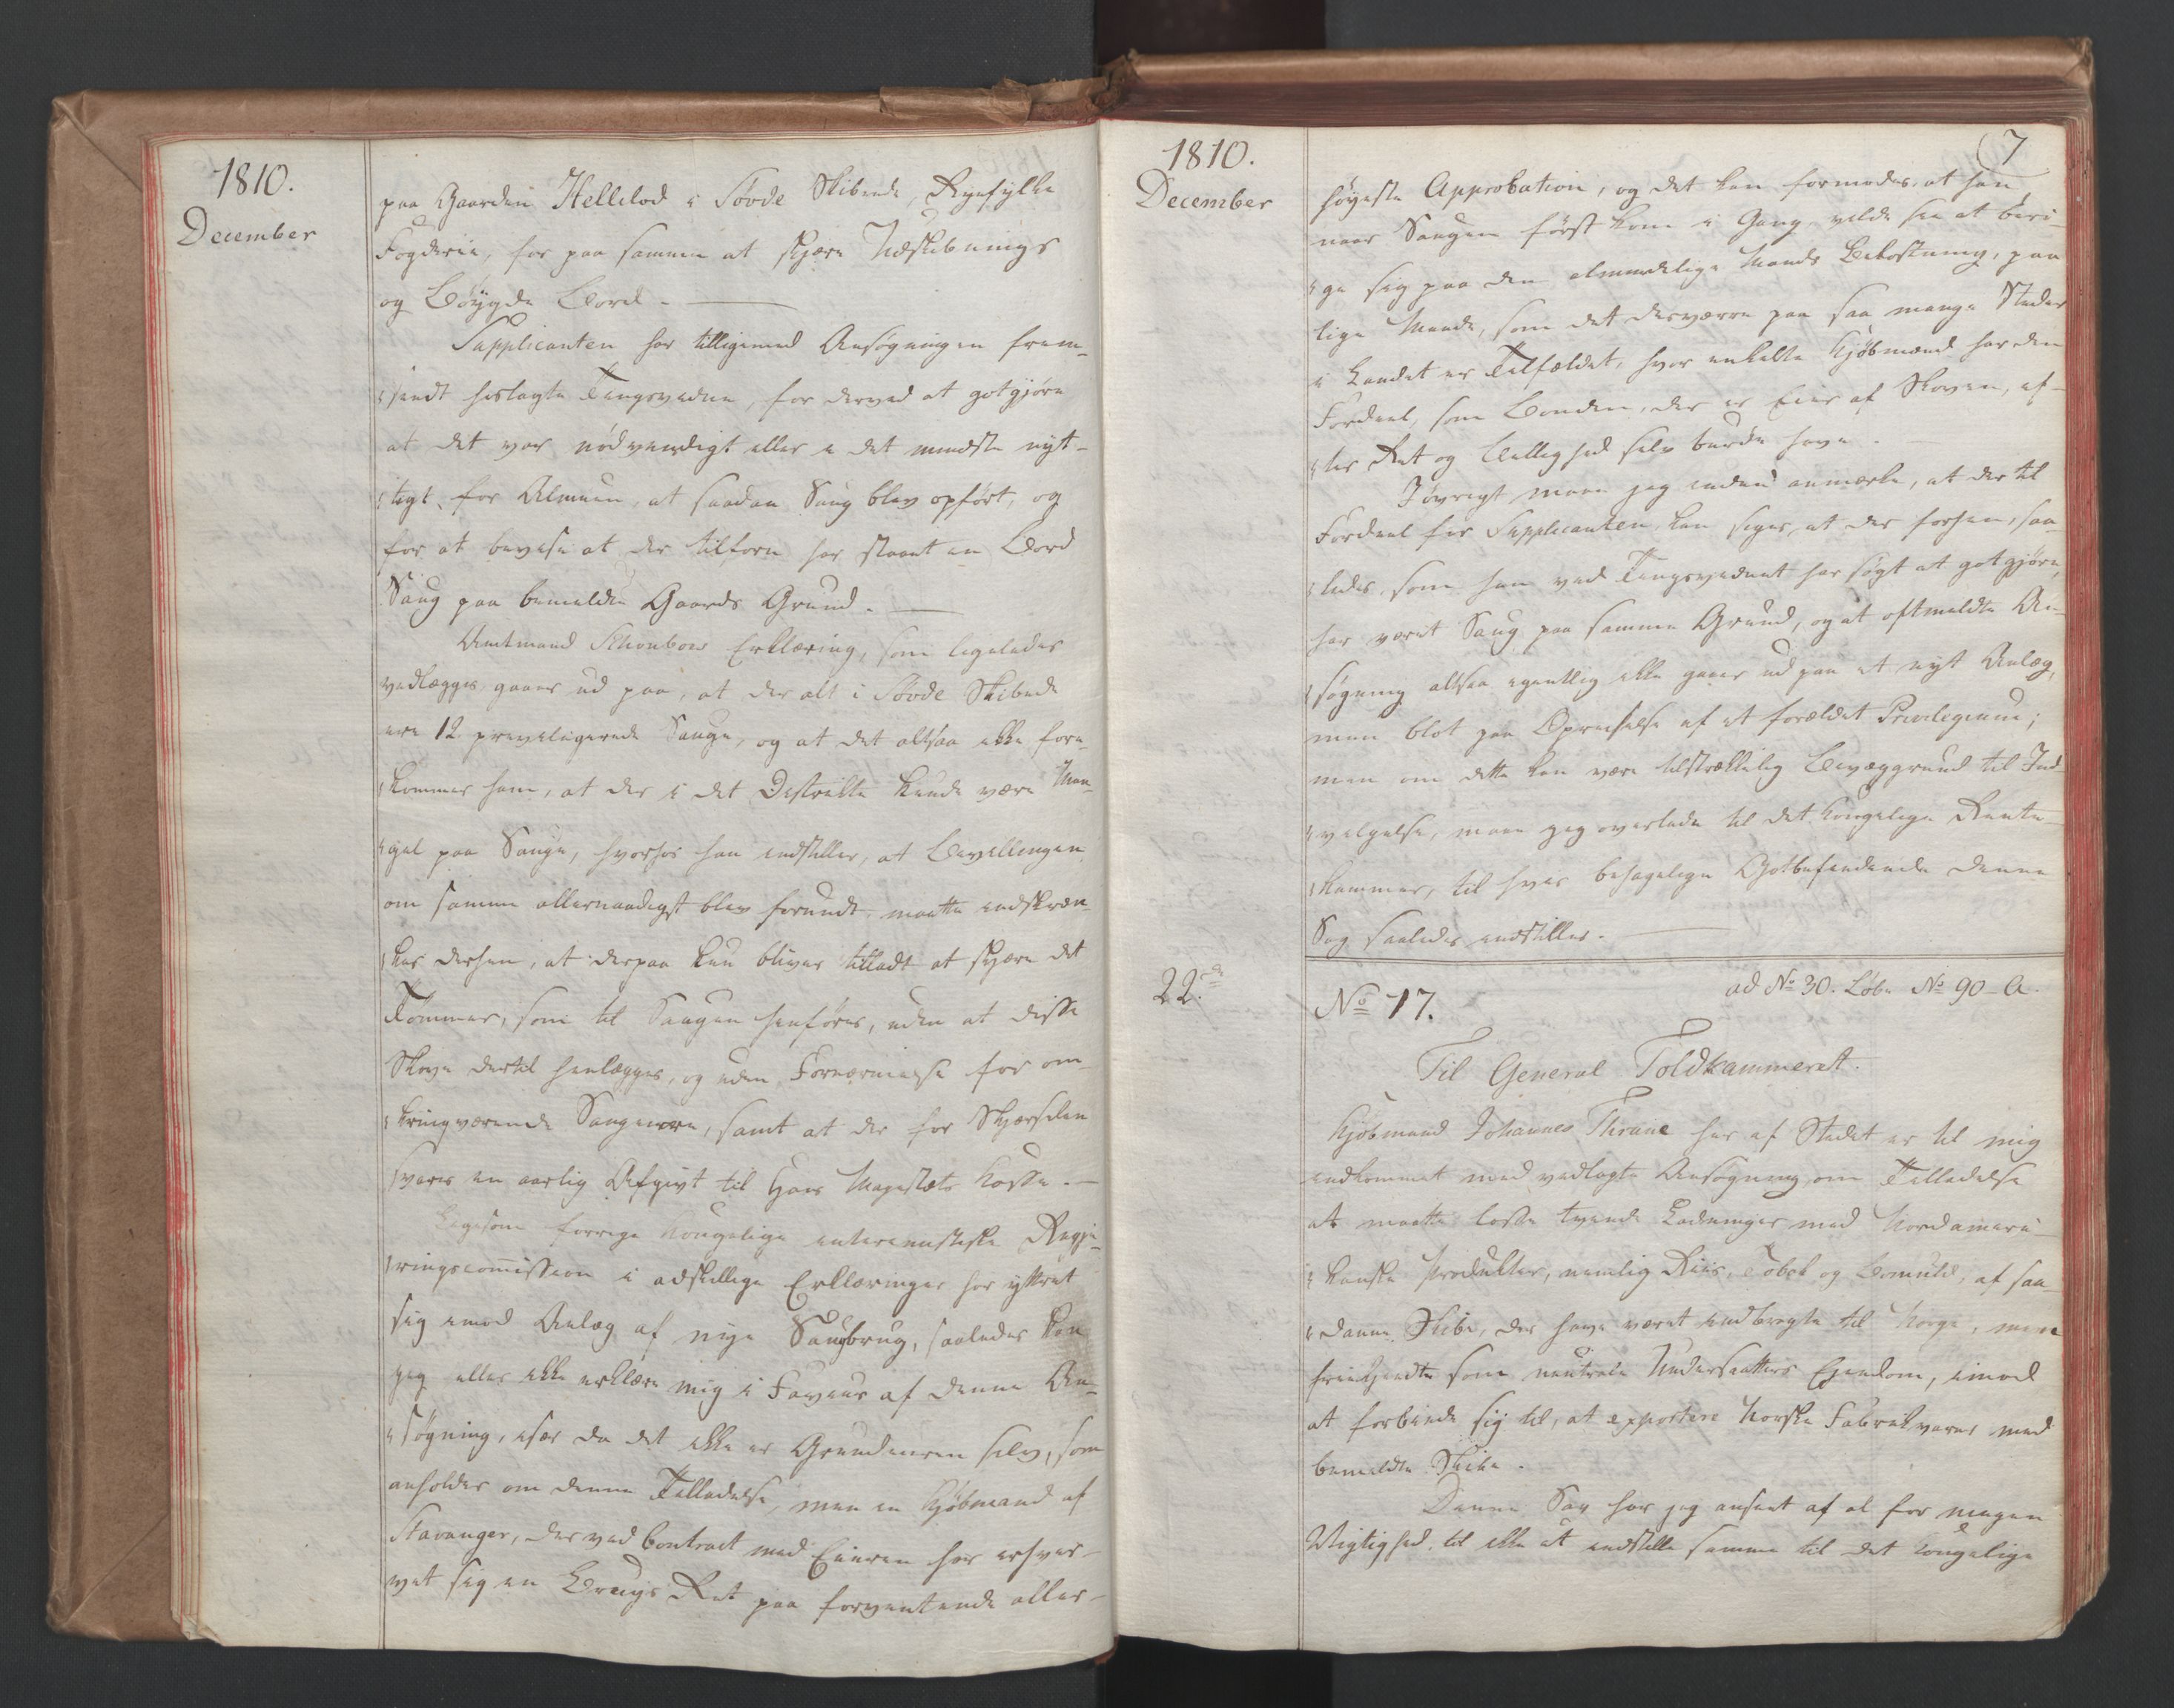 1810.
December
paa Gaarden Hellelod i Søvde Skibrede, Ryefylke
Fogderie, for paa samme at skjære Udskibnings
og Bøygde Bord. —
Supplicanten har tilligemed Ansøgningen frem-
sendt hoslagte Tingsvidne, for derved at gotgjøre
at det var nødvendigt eller i det mindste nyt-
tigt for Almuen, at saadan Saug blev opført, og
for at bevise at der tilforn har staaet en Bord
Saug paa bemeldte Gaards Grund. —
Amtmand Schonboes Erklæring, som ligeledes
vedlægges, gaaer ud paa, at der alt i Søvde Skibrede
ere 12 previligerede Sauge, og at det altsaa ikke fore-
kommer ham, at der i det Districkt kunde være Man-
gel paa Sauge, hvorhos han indstiller, at Bevillingen
om samme allernaadigst blev forundt, maatte indskræn-
kes derhen, at derpaa kun bliver tilladt at skjære det
Tømmer, som til Saugen henføres, uden at disse
Skove dertil henlægges, og uden Fornærmelse for om-
kringværende Saugeiere, samt at der for Skjørselen
svares en aarlig Afgivt til Hans Majestæts Kasse. —
Ligesom forrige Kongelige interimistiske Regje-
ringscommission i adskillige Erklæringer har yttret
sig imod Anlæg af nye Saugbrug, saaledes kan
jeg eller ikke erklære mig i Faveur af denne An-
søgning, især da det ikke er Grundeieren selv, som
anholder om denne Tilladelse, men en Kjøbmand af
Stavanger, der ved Contract med Eieren har erhver-
vet sig en Brugs Ret paa forventende aller-
1810.
December
7
høyeste Approbation, og det kan formodes, at han
naar Saugen først kom i Gang vilde see at beri-
ge sig paa den almindelige Mands Bekostning, paa
lige Maade, som det desværre paa saa mange Steder
i Landet er Tilfældet, hvor enkelte Kjøbmænd har den
Fordeel, som Bonden, der er Eier af Skoven, ef-
ter Ret og Billighed selv burde have. —
Iøvrigt maae jeg endnu anmærke, at der til
Fordeel for Supplicanten kan siges, at der forhen, saa-
ledes, som han ved Tingsvidnet har søgt at gotgjøre,
har været Saug paa samme Grund, og at oftmeldte An-
søgning altsaa egentlig ikke gaaer ud paa et nyt Anlæg,
men blot paa Opreiselse af et forældet Privilegium;
men om dette kan være tilstrækkelig Bevæggrund til Ind-
vilgelse, maae jeg overlade til det Kongelige Rente-
kammer, til hvis behagelige Gotbefindende denne
Sag saaledes indstilles. —
22de
No 17.
ad No 30. Løbe No 90 - A.
Til General Toldkammeret.
Kjøbmand Johannes Thrane her af Stedet er til mig
indkommet med vedlagte Ansøgning om Tilladelse
at maatte losse tvende Ladninger med Nordameri-
kanske Produkter, nemlig Riis, Tobak og Bomuld, af saa-
danne Skibe, der have været indbragte til Norge, men
frikjendte som neutrale Undersaatters Eiendom, imod
at forbinde sig til, at exportere Norske Fabrikvarer med
bemeldte Skibe.
Denne Sag har jeg anseet af al for megen
Vigtighed, til ikke at indstille samme til det Kongelige